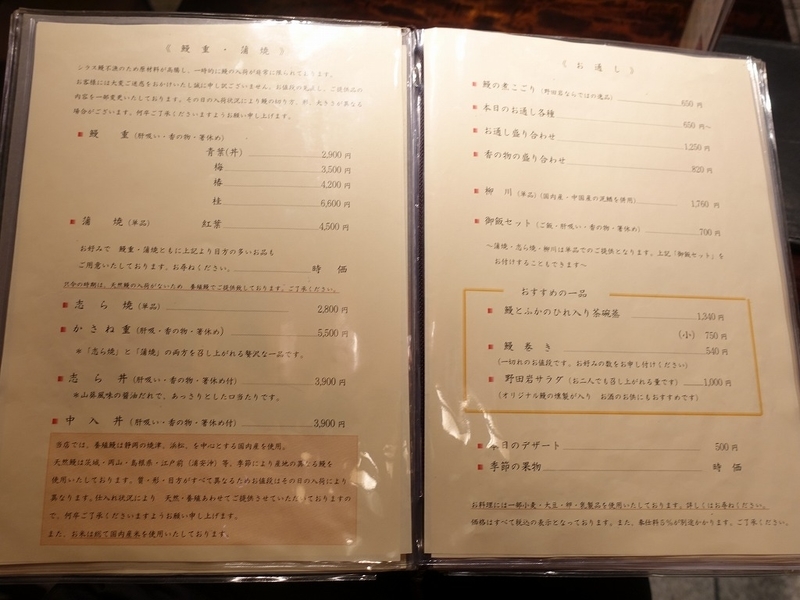 《 鰻 重 ・ 蒲 焼 》
シラス鰻不漁のため原材料が高騰し、一時的に鰻の入荷が非常に限られております。
お客様には大変ご迷惑をおかけいたし誠に申し訳ございません。お値段の見直し、ご提供品の
内容を一部変更いたしております。その日の入荷状況により鰻の切り方、形、大きさが異なる
場合がございます。何卒ご了承くださいますようお願い申し上げます。
鰻 重 (肝吸い・香の物・箸休め)
青葉(丼) 2,900 円
梅 3,500 円
椿 4,200 円
桂 6,600 円
蒲 焼 (単品) 紅葉 4,500 円
お好みで 鰻重・蒲焼ともに上記より目方の多いお品も
ご用意いたしております。お尋ねください。 時 価
只今の時期は、天然鰻の入荷がないため 養殖鰻でご提供致しております。ご了承ください。
志 ら 焼 (単品) 2,800 円
か さ ね 重 (肝吸・香の物・箸休め) 5,500 円
＊「志ら焼」と「蒲焼」の両方を召し上がれる贅沢な一品です。
志 ら 丼 (肝吸い・香の物・箸休め付) 3,900 円
＊山葵風味の醤油だれで、あっさりとしたお口当たりです。
中 入 丼 (肝吸い・香の物・箸休め付) 3,900 円
当店では、養殖鰻は静岡の焼津、浜松、を中心とする国内産を使用。
天然鰻は茨城・岡山・島根県・江戸前(浦安沖)等、季節により産地の異なる鰻を
使用いたしております。質・形・目方がすべて異なるためお値段はその日の入荷により
異なります。仕入れ状況により 天然・養殖あわせてご提供させていただいておりますの
で、何卒ご了承くださいますようお願い申し上げます。
また、お米は総て国内産米を使用いたしております。
《 お 通 し 》
鰻の煮こごり (野田岩ならではの逸品) 650 円
本日のお通し各種 650 円～
お通し盛り合わせ 1,250 円
香の物の盛り合わせ 820 円
柳 川 (単品) (国内産・中国産の泥鰌を併用) 1,760 円
御飯セット (ご飯・肝吸い・香の物・箸休め) 700 円
～蒲焼・志ら焼・柳川は単品でのご提供となります。上記「御飯セット」を
お付けすることもできます～
おすすめの一品
鰻とふかのひれ入り茶碗蒸 1,340 円
(小) 750 円
鰻 巻 き 540 円
(一切れのお値段です。お好みの数をお申し付けください)
野田岩サラダ (お二人でも召し上がれる量です) 1,000 円
(オリジナル鰻の燻製が入り お酒のお供にもおすすめです)
本日のデザート 500 円
季節の果物 時 価
お料理には一部小麦・大豆・卵・乳製品を使用いたしております。詳しくはお尋ねください。
価格はすべて税込の表示となっております。また、奉仕料5%が別途かかります。ご了承ください。